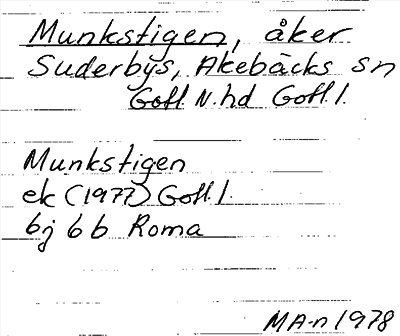 Munkstigen, åker
Suderbys, Akebäcks sn
Gotl. N. hd Gotl.
Munkstigen
ek (1977) Gotl.
bj 6b Roma
MA-n 1978